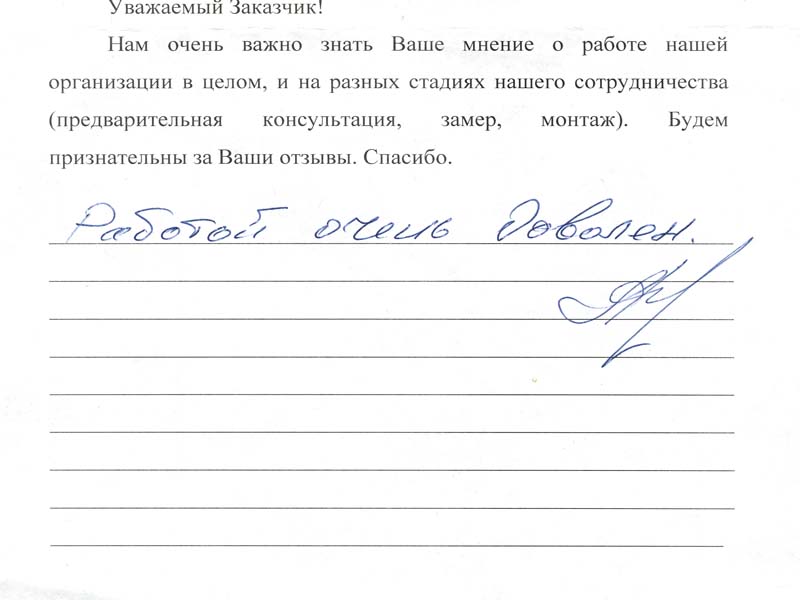 Уважаемый Заказчик!
Нам очень важно знать Ваше мнение о работе нашей
организации в целом, и на разных стадиях нашего сотрудничества
(предварительная консультация, замер, монтаж). Будем
признательны за Ваши отзывы. Спасибо.
Работой очень доволен.